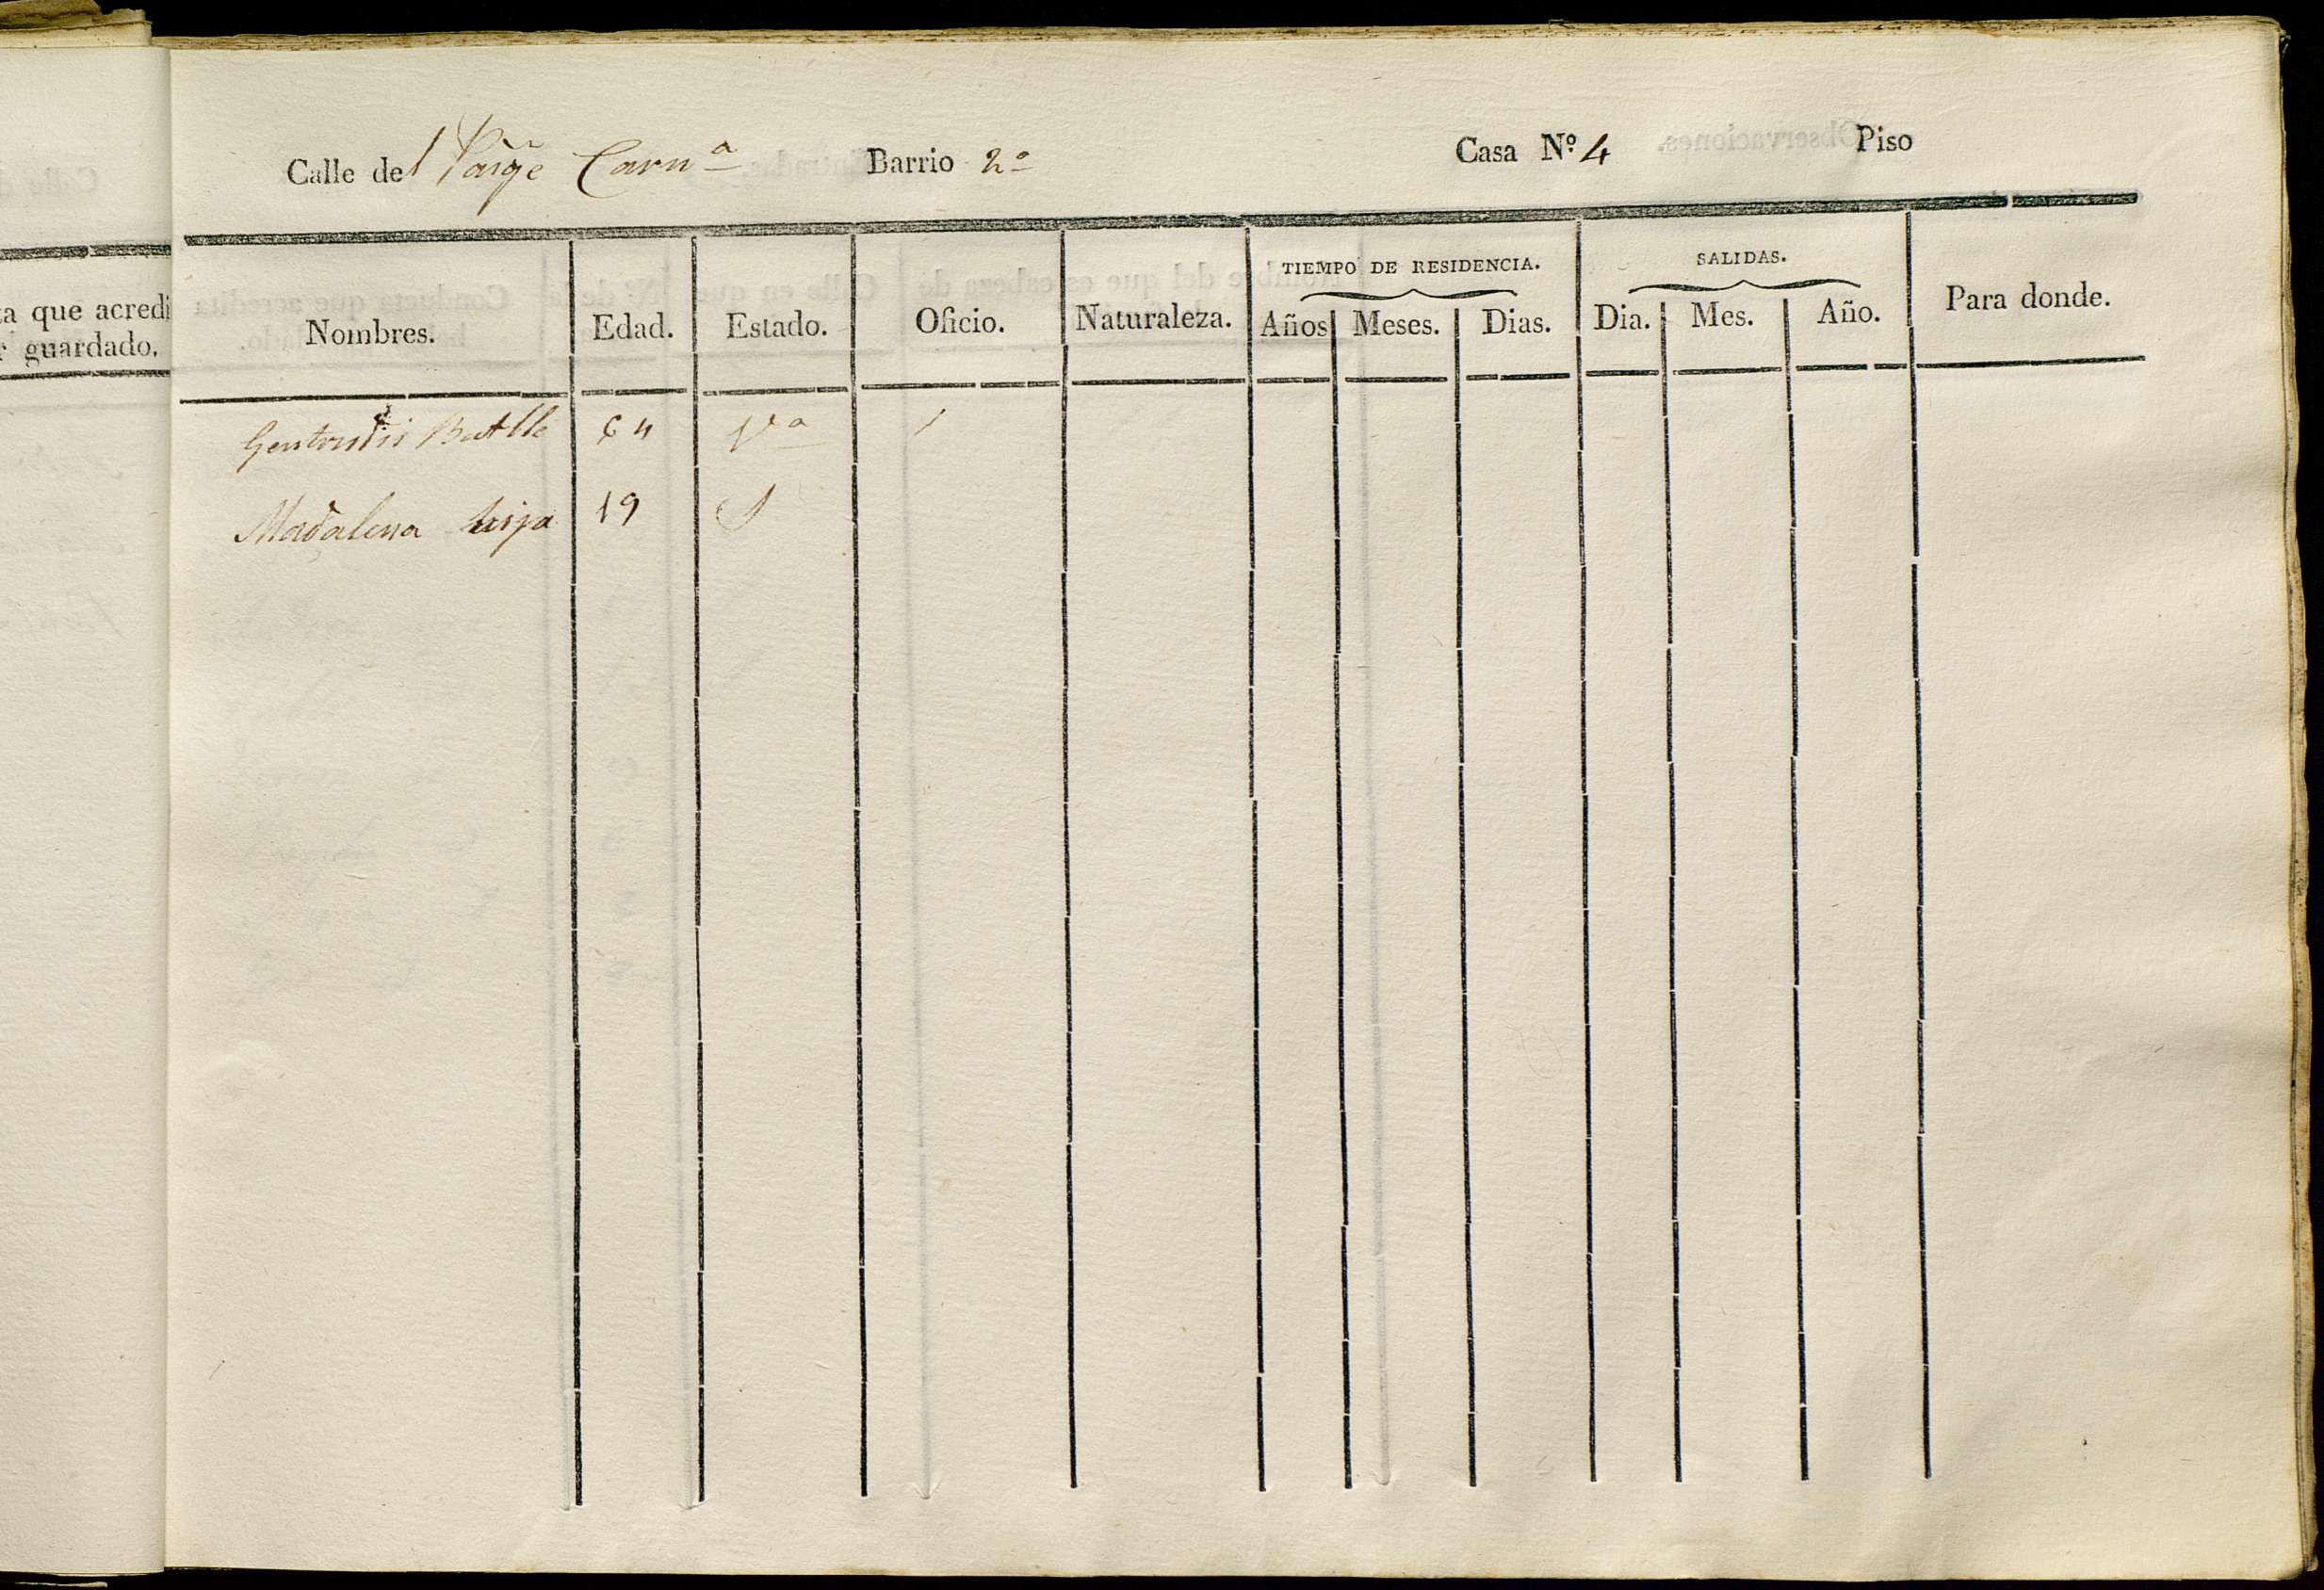 Calle del Barrio 2º Casa Nº 4 Piso
TIEMPO DE RESIDENCIA. SALIDAS.
Nombres. Edad. Estado. Oficio. Naturaleza. Años Meses. Dias. Dia. Mes. Año. Para donde.
Gertrudis Batlle 64 Vª
Madalena hija 19 S
a que acredi
guardado.